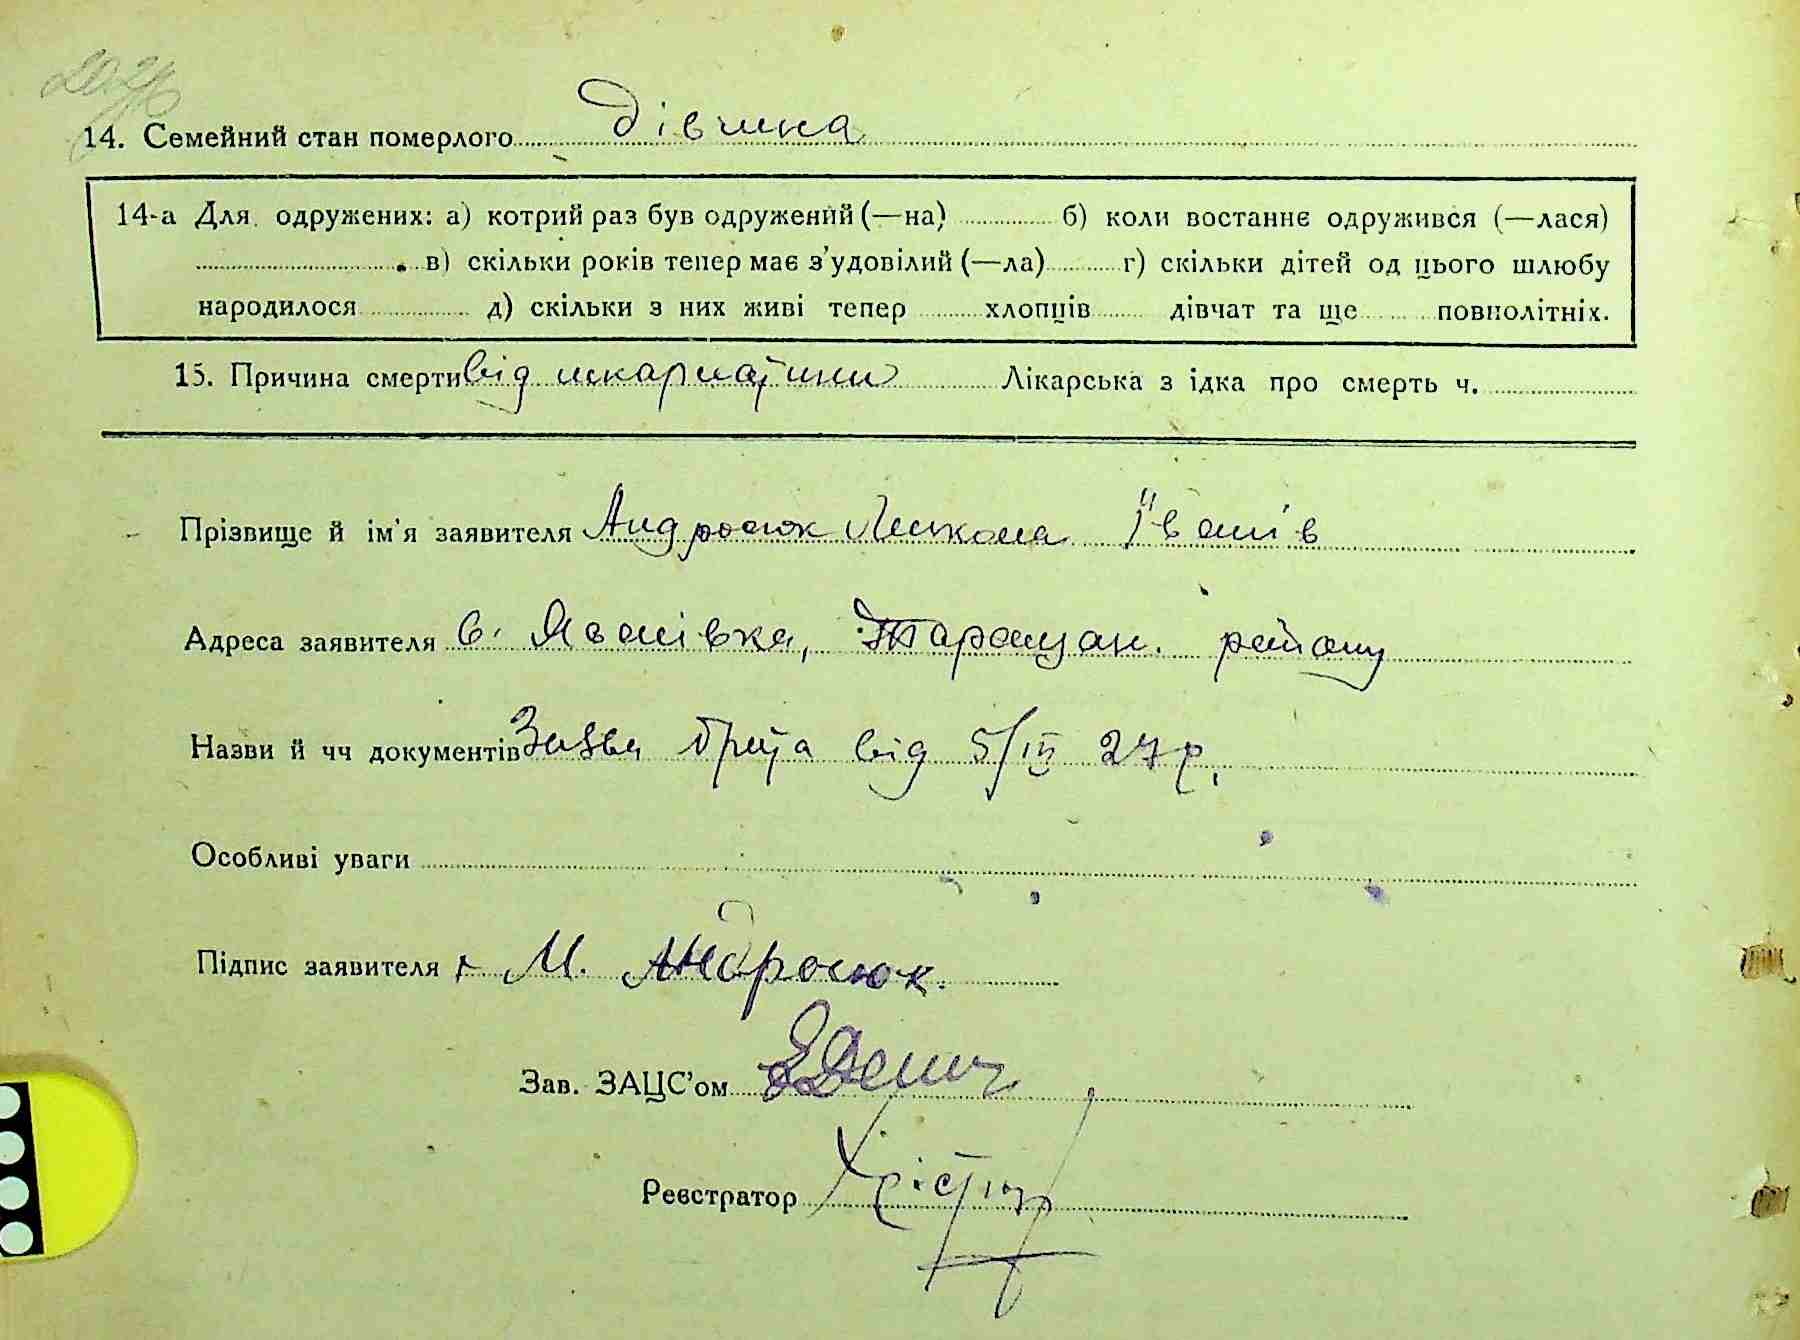 14. Семейний стан померлого дівчина
14-а Для одружених: а) котрий раз був одружений (—на) б) коли востаннє одружився (—лася)
в) скільки років тепер має з'удовілий (—ла) г) скільки дітей од цього шлюбу
народилося д) скільки з них живі тепер хлопців дівчат та ще повнолітніх.
15. Причина смерти від шкарлатини Лікарська з ідка про смерть ч.
Прізвище й ім'я заявителя Андросюк Микола Іванів
Адреса заявителя с. Яванівка, Таращан. району
Назви й чч документів Заява брата від 5/III 27 р.
Особливі уваги
Підпис заявителя М. Андросюк.
Зав. ЗАЦС'ом
Реєстратор